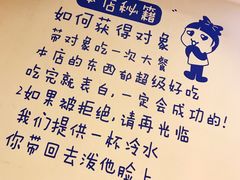 本店秘籍
如何获得对象
带对象吃一次大餐
本店的东西都超级好吃
吃完就表白,一定会成功的!
2如果被拒绝,请再光临
我们提供一杯冷水
你带回去泼他脸上